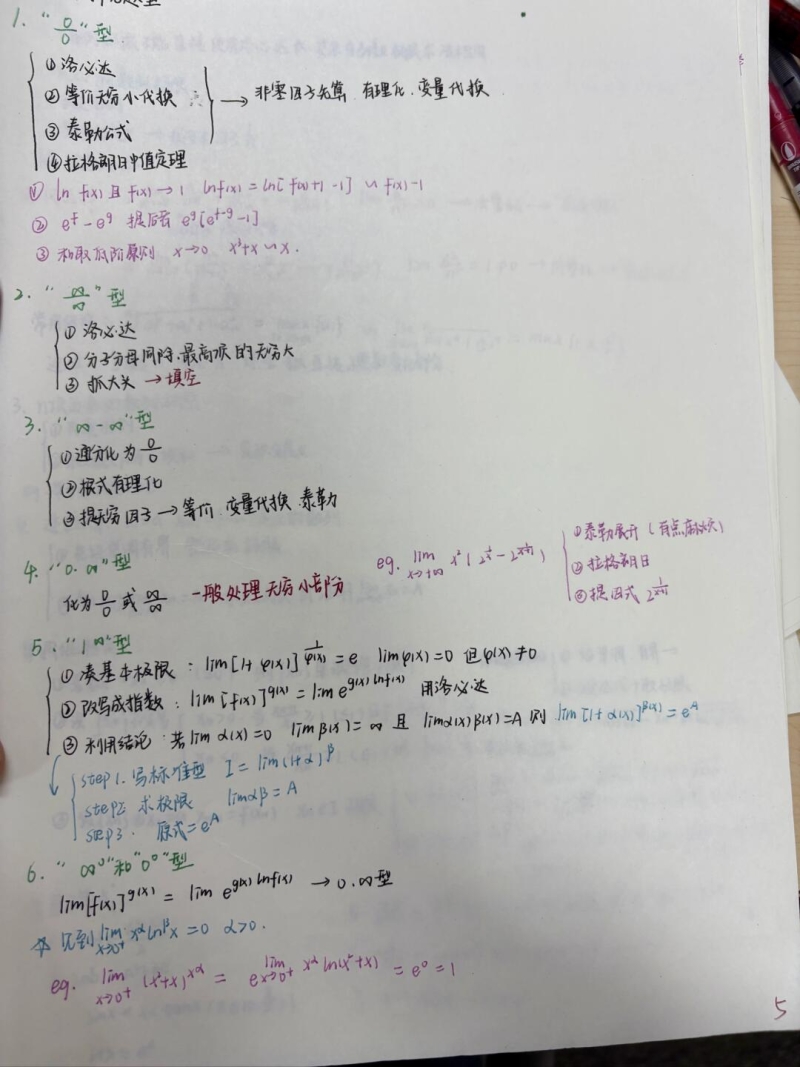 1. "0/0" 型
① 洛必达
② 等价无穷小代换
③ 泰勒公式
→ 非零因子先算 有理化、变量代换
④ 拉格朗日中值定理
① ln f(x) 且 f(x)→1 lnf(x) = ln[f(x)+1-1] ∽ f(x)-1
② e^f - e^g 提后者 e^g[e^{f-g}-1]
③ 和取低阶原则 x→0 x³+x ∽ x.
2. "∞/∞" 型
① 洛必达
② 分子分母同除.最高项的无穷大
③ 抓大头 → 填空
3. "∞-∞" 型
① 通分化为 0/0
② 根式有理化
③ 提无穷因子 → 等价 变量代换 泰勒
4. "0·∞" 型
化为 0/0 或 ∞/∞ 一般处理无穷小部分
eg. lim x→+∞ x²(2^{1/x} - 2^{1/(x+1)})
① 泰勒展开(有点麻烦)
② 拉格朗日
③ 提因式 2^{1/(x+1)}
5. "1^∞" 型
① 凑基本极限: lim[1+φ(x)]^{1/φ(x)} = e limφ(x)=0 但φ(x)≠0
② 改写成指数: lim[f(x)]^{g(x)} = lim e^{g(x)lnf(x)} 用洛必达
③ 利用结论 若lim α(x)=0 limβ(x)=∞ 且 limα(x)β(x)=A 则 lim[1+α(x)]^{β(x)}=e^A
step1. 写标准型 I = lim(1+α)^β
step2 求极限 limαβ = A
step3. 原式=e^A
6. "∞⁰"和"0⁰"型
lim[f(x)]^{g(x)} = lim e^{g(x)lnf(x)} → 0.∞型
☆ 见到 lim x→0⁺ x^α ln^β x = 0 α>0.
eg. lim x→0⁺ (x²+x)^{x^α} = e^{lim x→0⁺ x^α ln(x²+x)} = e⁰ = 1
5